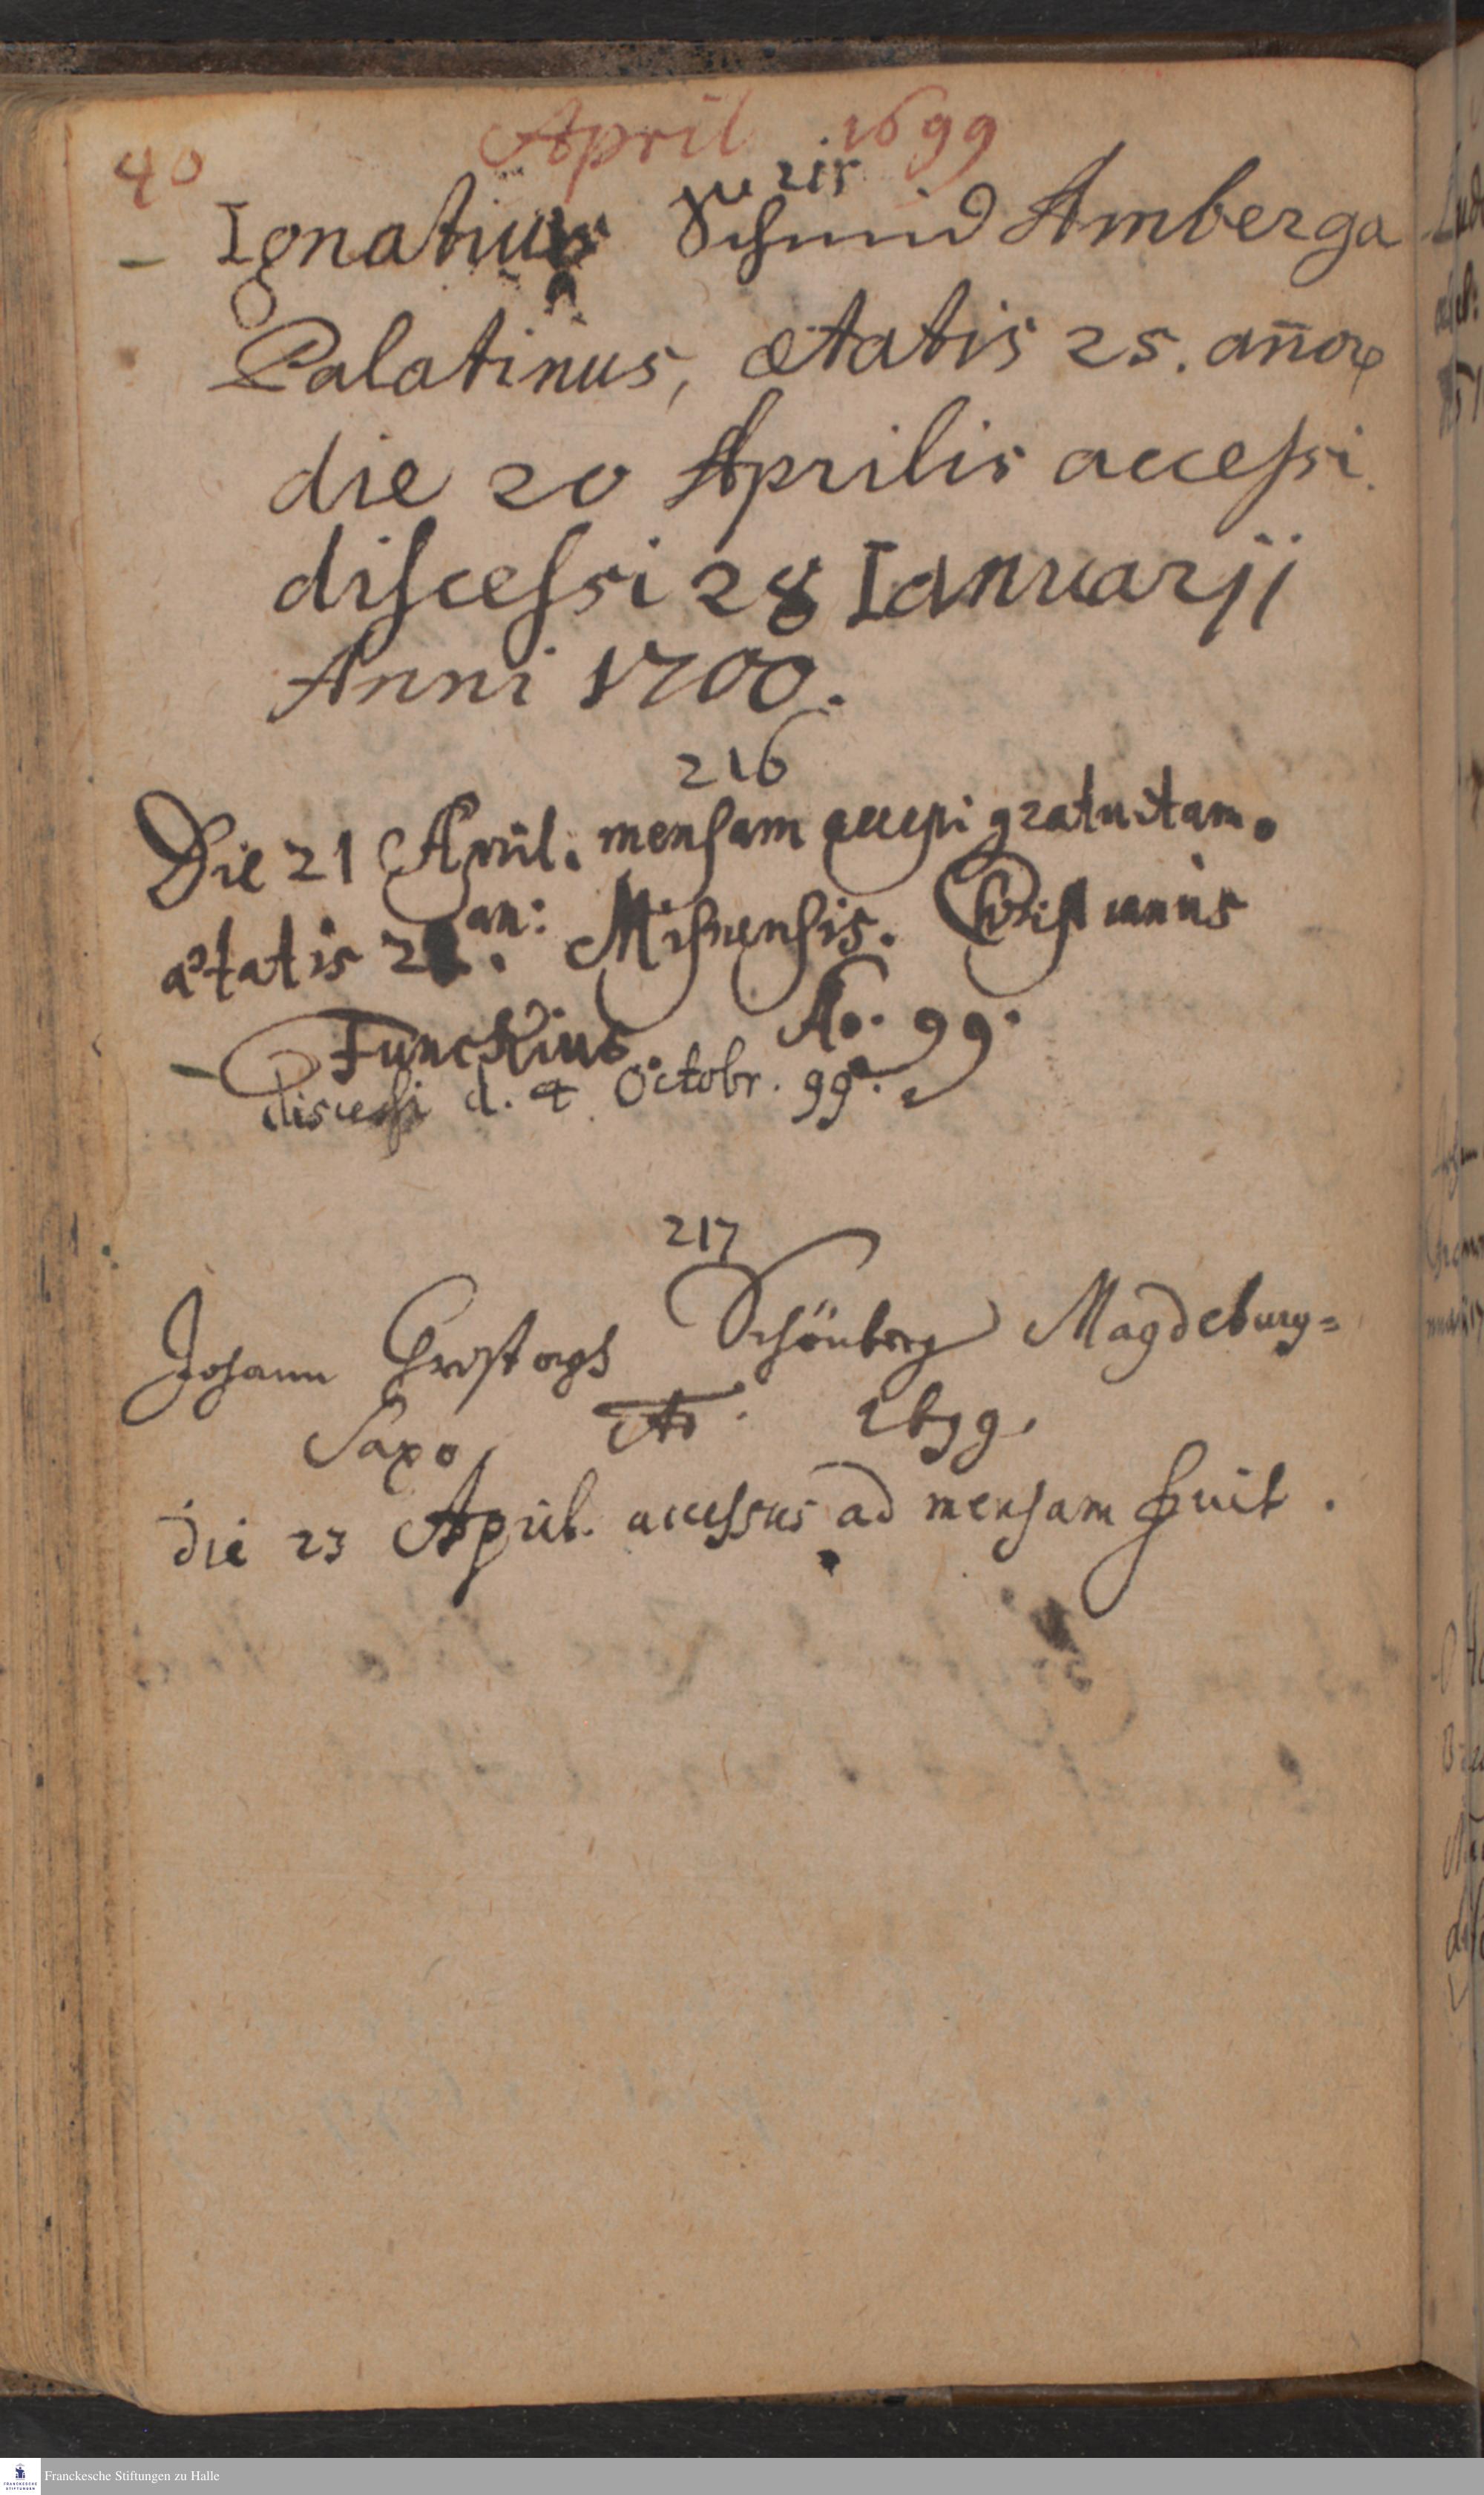 40
April 1699
215
Ignatius Schmid Amberga
Palatinus, ætatis 25. añoꝝ
die 20 Aprilis accessi.
discessi 28 Ianuarij
Anni 1700.
216
Die 21 April. mensam accepi gratuitam.
ætatis an: Misnensis. Christianus
Funckius Ao. 99.
discessi d. 4 Octobr. 99.
217
Johann Christoph Schönberg Magdeburg=
Saxo, Ao. 1699.
die 23 April. accessus ad mensam fuit.
Franckesche Stiftungen zu Halle